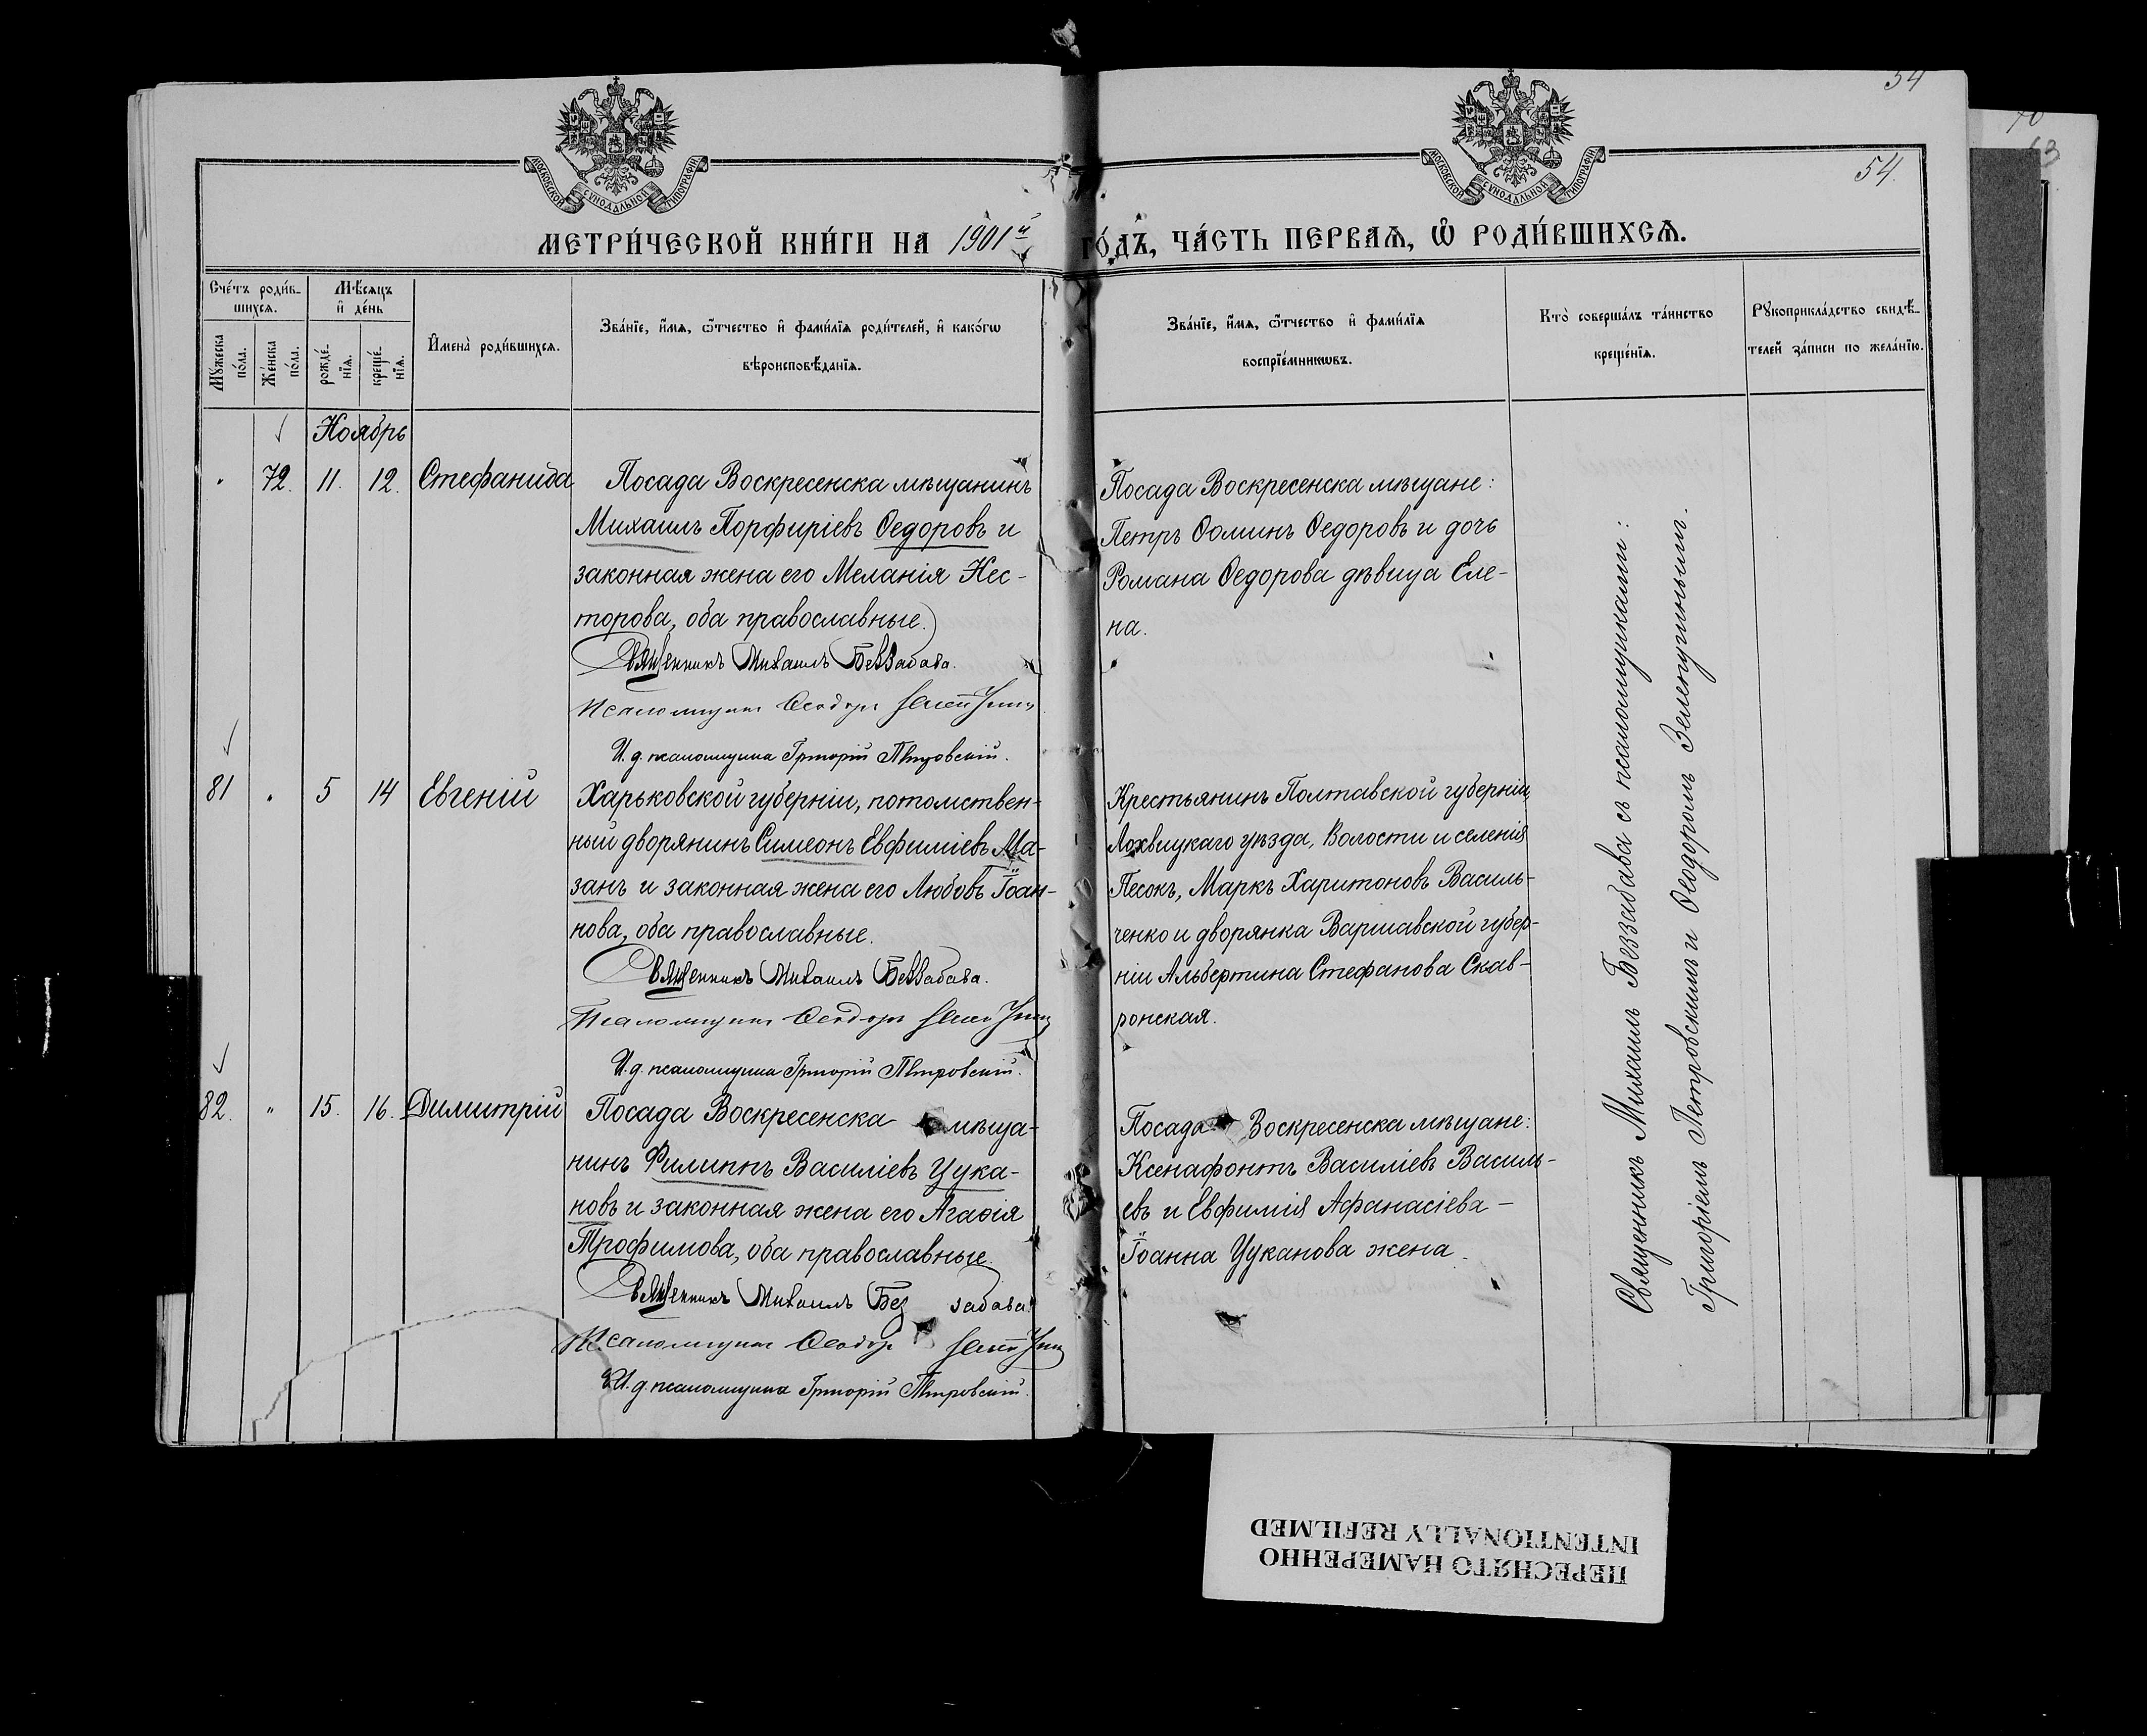 54
54.
МОСКОВСКОЙ СѴНОДАЛЬНОЙ ТИПОГРАФІИ
МОСКОВСКОЙ СѴНОДАЛЬНОЙ ТИПОГРАФІИ
МЕТРИ́ЧЕСКОЙ КНИ́ГИ НА 1901й ГО́ДЪ, ЧА́СТЬ ПЕРВАѦ, Ѡ҆ РОДИ́ВШИХСѦ.
Сче́тъ роди́в-
шихсѧ.
Мꙋ́жеска
по́ла.
Же́нска
по́ла.
Мѣ́сѧцъ
и҆ де́нь
рожде́-
нїѧ.
креще́-
нїѧ.
И҆мена̀ роди́вшихсѧ.
Зва́нїе, и҆́мѧ, ѻ҆́тчество и҆ фами́лїѧ роди́телей, и҆ како́гѡ
вѣроисповѣ́данїѧ.
Зва́нїе, и҆́мѧ, ѻ҆́тчество и҆ фами́лїѧ
воспрїе́мникѡвъ.
Кто̀ соверша́лъ та́инство
креще́нїѧ.
Рꙋкоприкла́дство свидѣ́-
телей за́писи по жела́нїю.
Ноябрь
" 72. 11. 12. Стефанида
Посада Воскресенска мѣщанинъ
Михаилъ Порфиріевъ Ѳедоровъ и
законная жена его Меланія Нес-
торова, оба православные.
Священникъ Михаилъ Беззабава.
Псаломщикъ Ѳеодоръ
И. д. псаломщика Григорій Петровскій.
Посада Воскресенска мѣщане:
Петръ Ѳоминъ Ѳедоровъ и дочь
Романа Ѳедорова дѣвица Еле-
на.
81 " 5 14 Евгеній
Харьковской губерніи, потомствен-
ный дворянинъ Симеонъ Евфиміевъ Ма-
занъ и законная жена его Любовь Іоан-
нова, оба православные.
Священникъ Михаилъ Беззабава.
Псаломщикъ Ѳеодоръ
И. д. псаломщика Григорій Петровскій.
Крестьянинъ Полтавской губерніи,
Лохвицкаго уѣзда, Волости и селенія
Песокъ, Маркъ Харитоновъ Василь-
ченко и дворянка Варшавской губер-
ніи Альбертина Стефанова Скав-
ронская.
82. " 15. 16. Димитрій
Посада Воскресенска мѣща-
нинъ Филиппъ Василіевъ Цука-
новъ и законная жена его Агаѳія
Трофимова, оба православные.
Священникъ Михаилъ Беззабава.
Псаломщикъ Ѳеодоръ
И. д. псаломщика Григорій Петровскій.
Посада Воскресенска мѣщане:
Ксенафонтъ Василіевъ Василь-
евъ и Евфимія Афанасіева -
Іоанна Цуканова жена.
Священникъ Михаилъ Беззабава съ псаломщиками:
Григоріемъ Петровскимъ и Ѳеодоромъ
ПЕРЕСНЯТО НАМЕРЕННО
INTENTIONALLY REFILMED